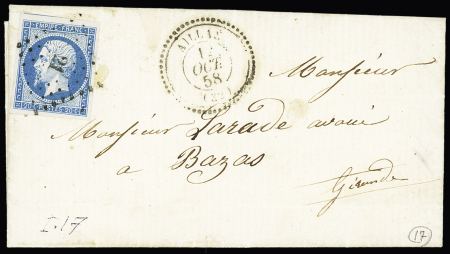 EMPIRE FRANC
20c POSTES 20c
OCT
58
Monsieur
Monsieur Larade avoué
a Bazas
Gironde
I.17
17